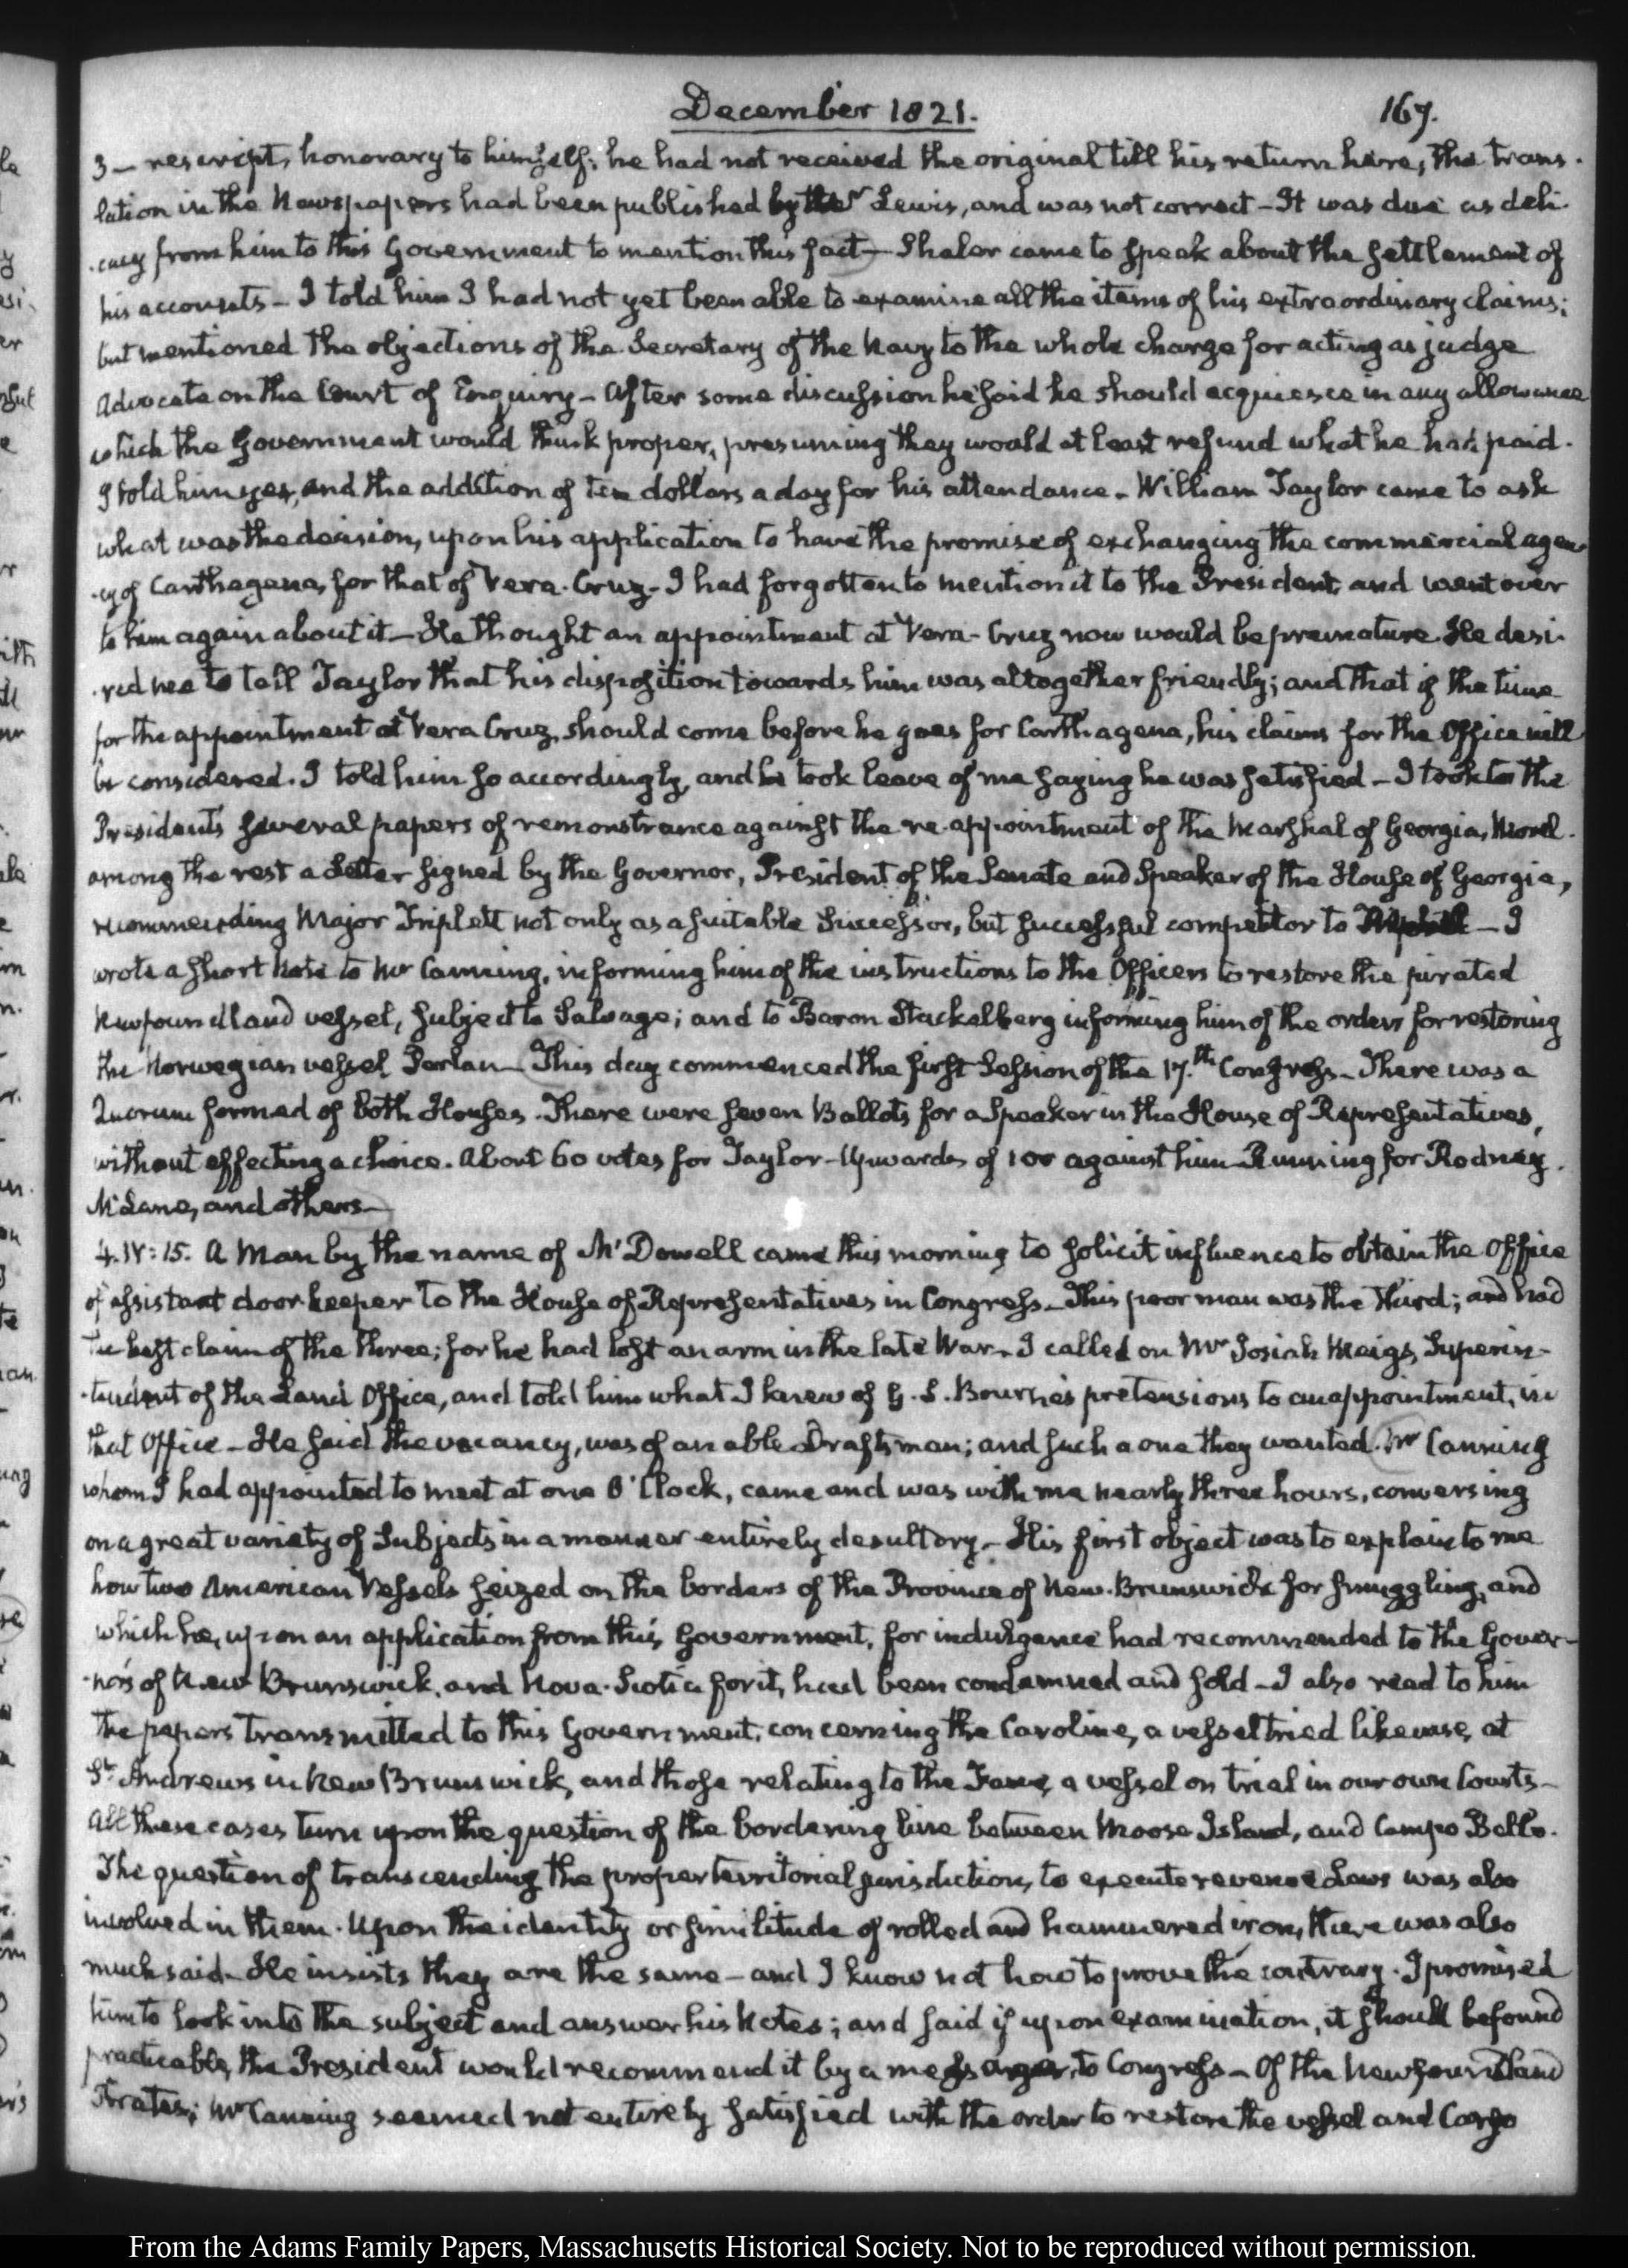 December 1821.
167.
3 — rescript, honorary to himself; he had not received the original till his return here, the trans-
lation in the Newspapers had been published by Lewis, and was not correct — It was due as deli-
-cacy from him to this Government to mention this fact — Shaler came to speak about the settlement of
his accounts — I told him I had not yet been able to examine all the items of his extraordinary claims;
but mentioned the objections of the Secretary of the Navy to the whole charge for acting as judge
Advocate on the Court of Enquiry — After some discussion he said he should acquiesce in any allowance
which the Government would think proper, presuming they would at least refund what he had paid.
I told him yes, and the addition of ten dollars a day for his attendance. William Taylor came to ask
what was the decision, upon his application to have the promise of exchanging the commercial agen-
-cy of Carthagena, for that of Vera-Cruz — I had forgotten to mention it to the President, and went over
to him again about it — He thought an appointment at Vera-Cruz now would be premature. He desi-
-red me to tell Taylor that his disposition towards him was altogether friendly; and that if the time
for the appointment at Vera Cruz, should come before he goes for Carthagena, his claims for the Office will
be considered. I told him so accordingly, and he took leave of me saying he was satisfied — I took to the
President's several papers of remonstrance against the re-appointment of the Marshal of Georgia, Morel.
among the rest a Letter signed by the Governor, President of the Senate and Speaker of the House of Georgia,
recommending Major Triplett not only as a suitable Successor, but successful competitor to — I
wrote a short Note to Mr Canning, informing him of the instructions to the Officers to restore the pirated
Newfoundland vessel, subject to Salvage; and to Baron Stackelberg informing him of the orders for restoring
the Norwegian vessel Perlan — This day commenced the first Session of the 17.th Congress — There was a
Quorum formed of both Houses. There were seven Ballots for a Speaker in the House of Representatives,
without effecting a choice. About 60 votes for Taylor — Upwards of 100 against him — Running for Rodney,
McLane, and others —
4. IV: 15. A Man by the name of McDowell came this morning to solicit influence to obtain the Office
of assistant door keeper to the House of Representatives in Congress — This poor man was the third; and had
the best claim of the three; for he had lost an arm in the late War. I called on Mr Josiah Meigs, Superin-
-tendent of the Land Office, and told him what I knew of G. S. Bourne's pretensions to an appointment, in
that Office — He said the vacancy, was of an able Draftsman; and such a one they wanted. Mr Canning
whom I had appointed to meet at one O'Clock, came and was with me nearly three hours, conversing
on a great variety of Subjects in a manner entirely desultory — His first object was to explain to me
how two American Vessels seized on the borders of the Province of New-Brunswick for smuggling, and
which he, upon an application from this Government, for indulgence had recommended to the Gover-
-nors of New Brunswick, and Nova-Scotia for it, had been condemned and sold — I also read to him
the papers transmitted to this Government, concerning the Caroline, a vessel tried likewise, at
St. Andrews in New Brunswick, and those relating to the a vessel on trial in our own Courts —
All these cases turn upon the question of the bordering line between Moose Island, and Campo Bello.
The question of transcending the proper territorial jurisdiction, to execute revenue Laws was also
involved in them. Upon the identity or similitude of rolled and hammered iron, there was also
much said — He insists they are the same — and I know not how to prove the contrary. I promised
him to look into the subject and answer his Notes; and said if upon examination, it should be found
practicable, the President would recommend it by a message, to Congress — Of the Newfoundland
Pirates; Mr Canning seemed not entirely satisfied with the order to restore the vessel and Cargo
From the Adams Family Papers, Massachusetts Historical Society. Not to be reproduced without permission.